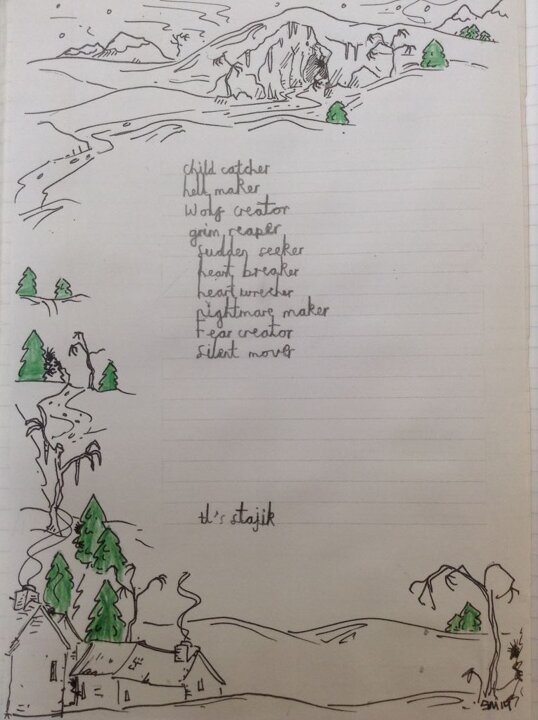 child catcher
hell maker
Wolf creator
grim reaper
sudden seeker
heart breaker
heart wrecher
nightmare maker
Fear creator
silent mover
it's stajik